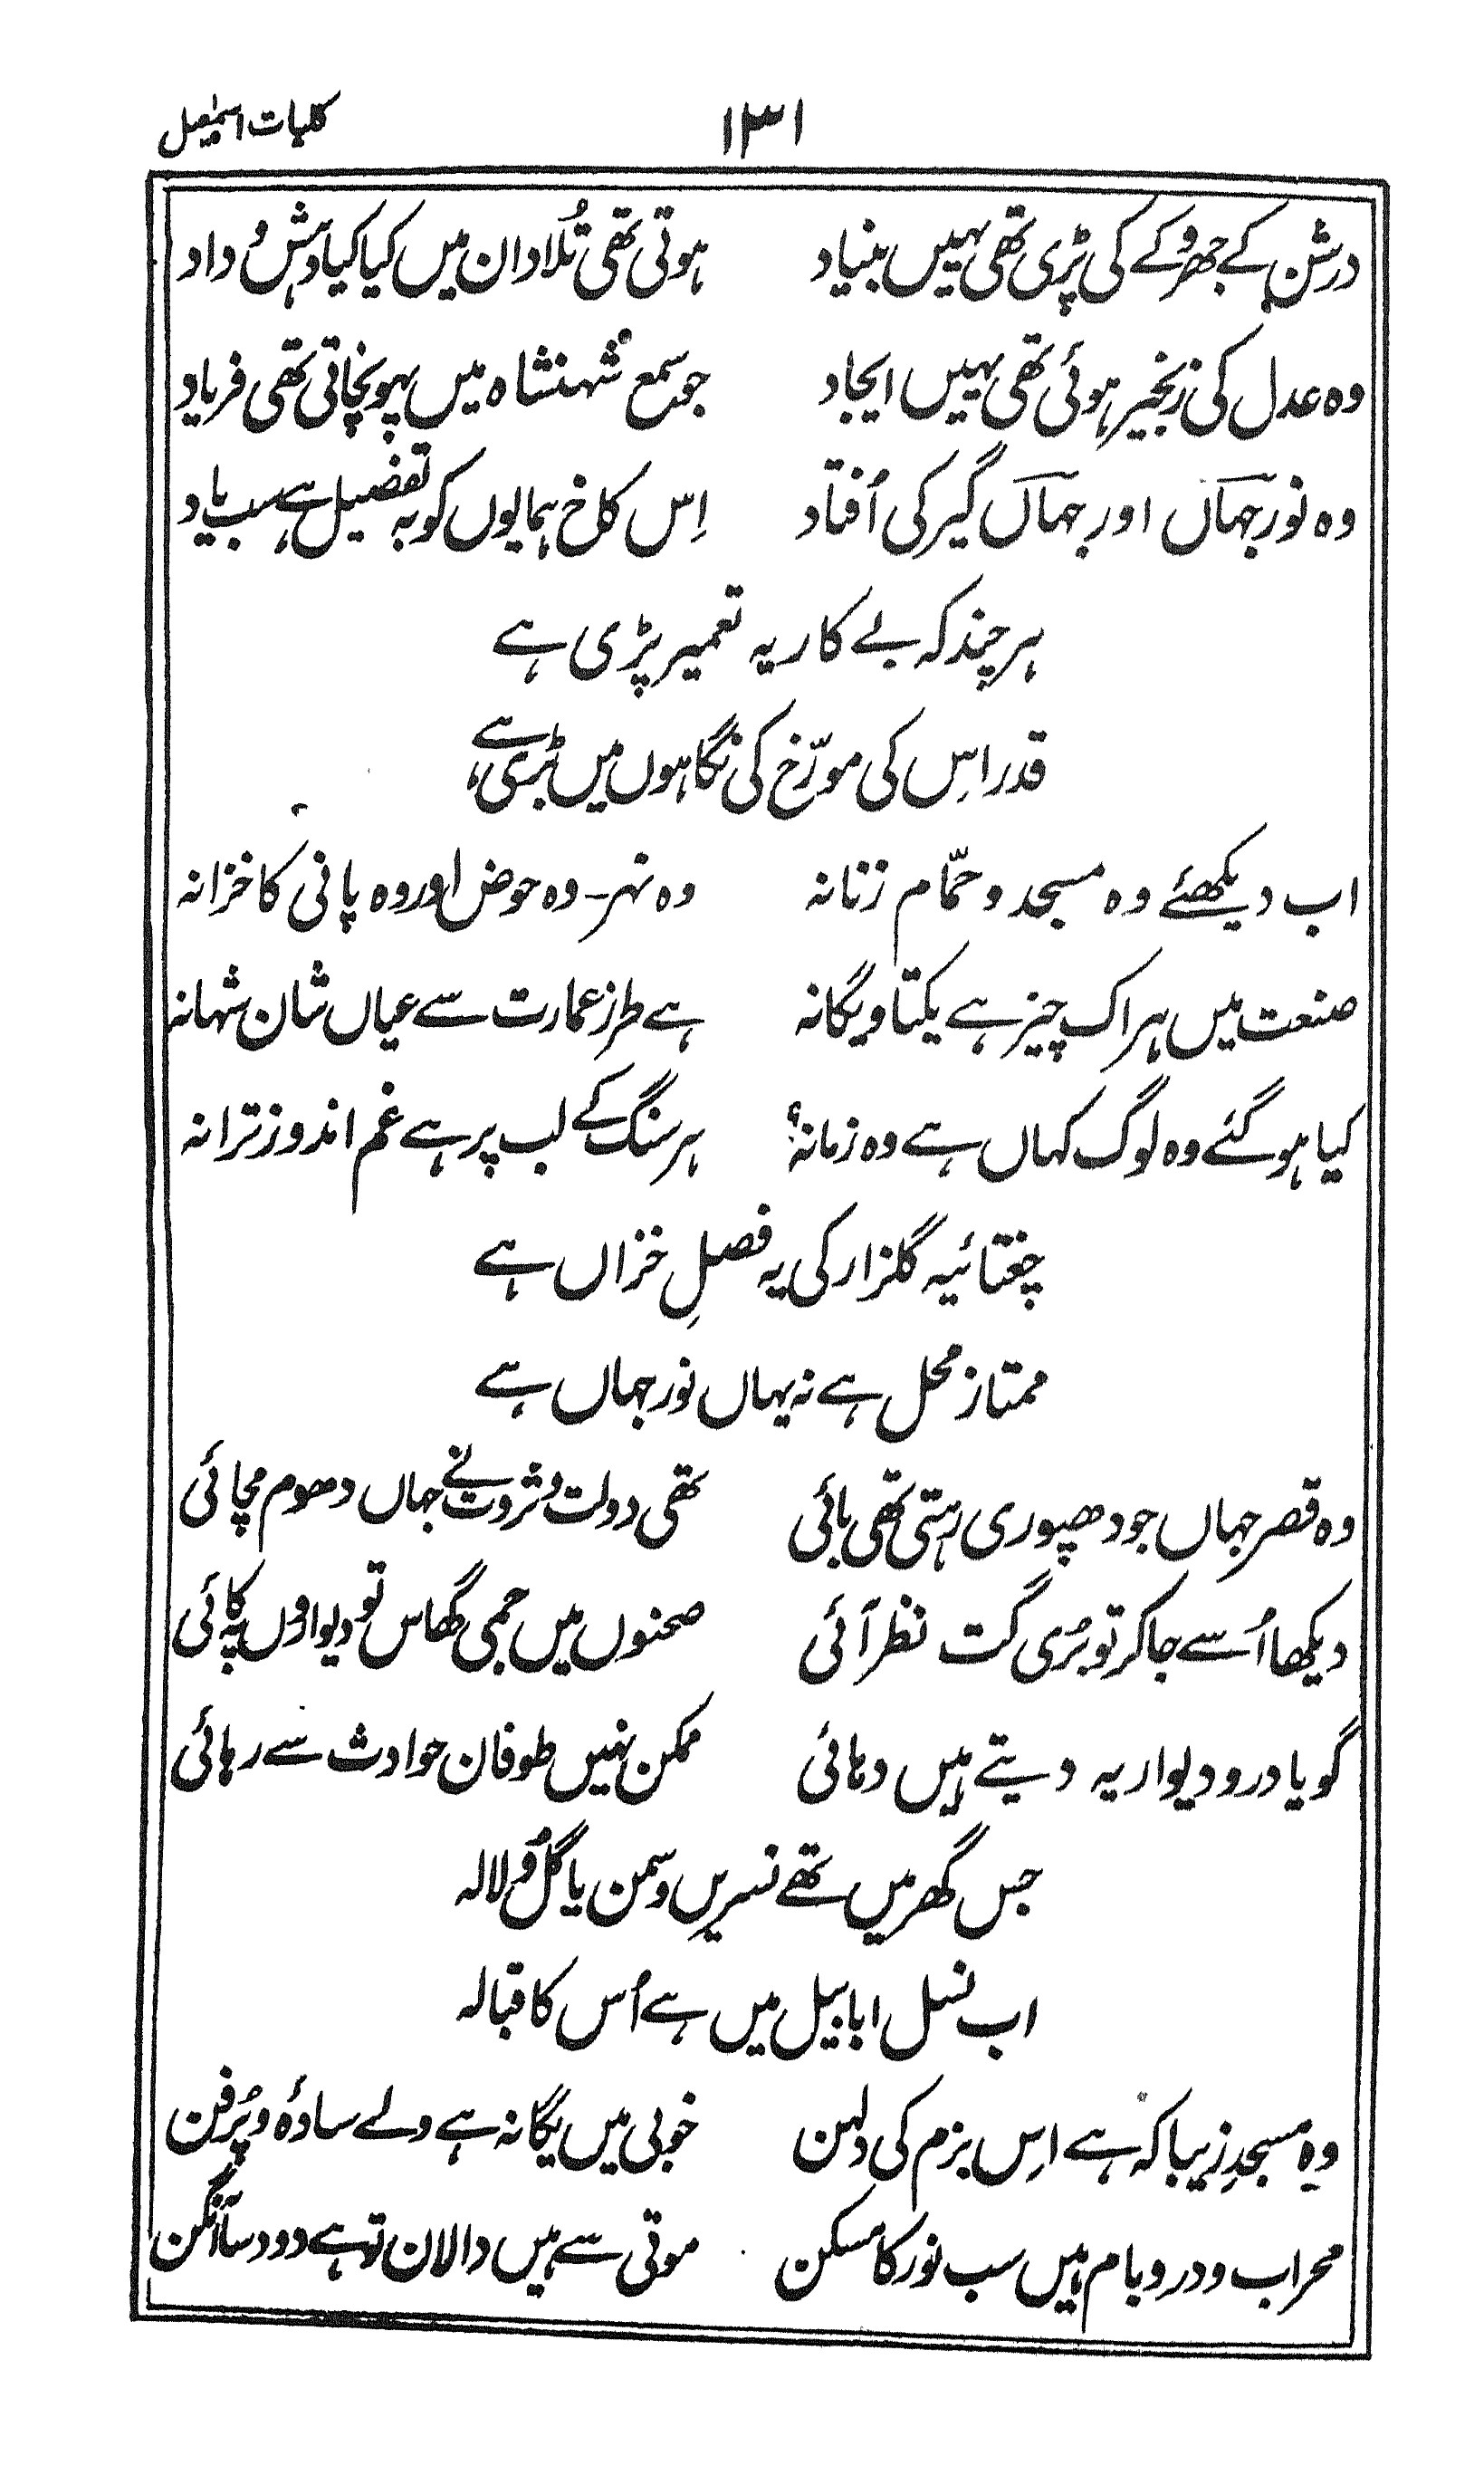 ۱۳۱ کلیات اسمٰعیل
درشن کے جھروکے کی پڑی تھی یہیں بنیاد ہوتی تھی تُلادان میں کیا کیا دہش و داد
وہ عدل کی زنجیر ہوئی تھی یہیں ایجاد جو سمع شہنشاہ میں پہونچاتی تھی فریاد
وہ نور جہاں اور جہاں گیر کی اُفتاد اِس کاخ ہمایوں کو بہ تفصیل ہے سب یاد
ہر چند کہ بے کار یہ تعمیر پڑی ہے
قدر اِس کی مورّخ کی نگاہوں میں بڑی ہے
اب دیکھئے وہ مسجد و حمّام زنانہ وہ نہر۔ وہ حوض اور وہ پانی کا خزانہ
صنعت میں ہر اک چیز ہے یکتا و یگانہ ہے طرز عمارت سے عیاں شان شہانہ
کیا ہو گئے وہ لوگ کہاں ہے وہ زمانہ؟ ہر سنگ کے لب پر ہے غم اندوز ترانہ
چغتائیہ گلزار کی یہ فصلِ خزاں ہے
ممتاز محل ہے نہ یہاں نور جہاں ہے
وہ قصر جہاں جودھپوری رہتی تھی بائی تھی دولت و ثروت نے جہاں دھوم مچائی
دیکھا اُسے جا کر تو بُری گت نظر آئی صحنوں میں جمی گھاس تو دیواروں پہ کائی
گویا در و دیوار یہ دیتے ہیں دہائی ممکن نہیں طوفان حوادث سے رہائی
جس گھر میں تھے نسریں و سمن یا گُل و لالہ
اب نسل ابابیل میں ہے اُس کا قبالہ
وہ مسجدِ زیبا کہ ہے اِس بزم کی دلہن خوبی میں یگانہ ہے ولے سادۂ و پُرفن
محراب و در و بام ہیں سب نور کا مسکن موتی سے ہیں دالان تو ہے دودسا آنگن